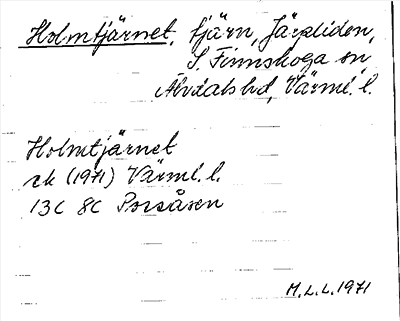 Holmtjärnet, tjärn, Järpliden,
S. Finnskoga sn,
Älvdals hd, Värml. l.
Holmtjärnet
ek (1971) Värml. l.
13C 8C Porsåsen
M.L.L. 1971